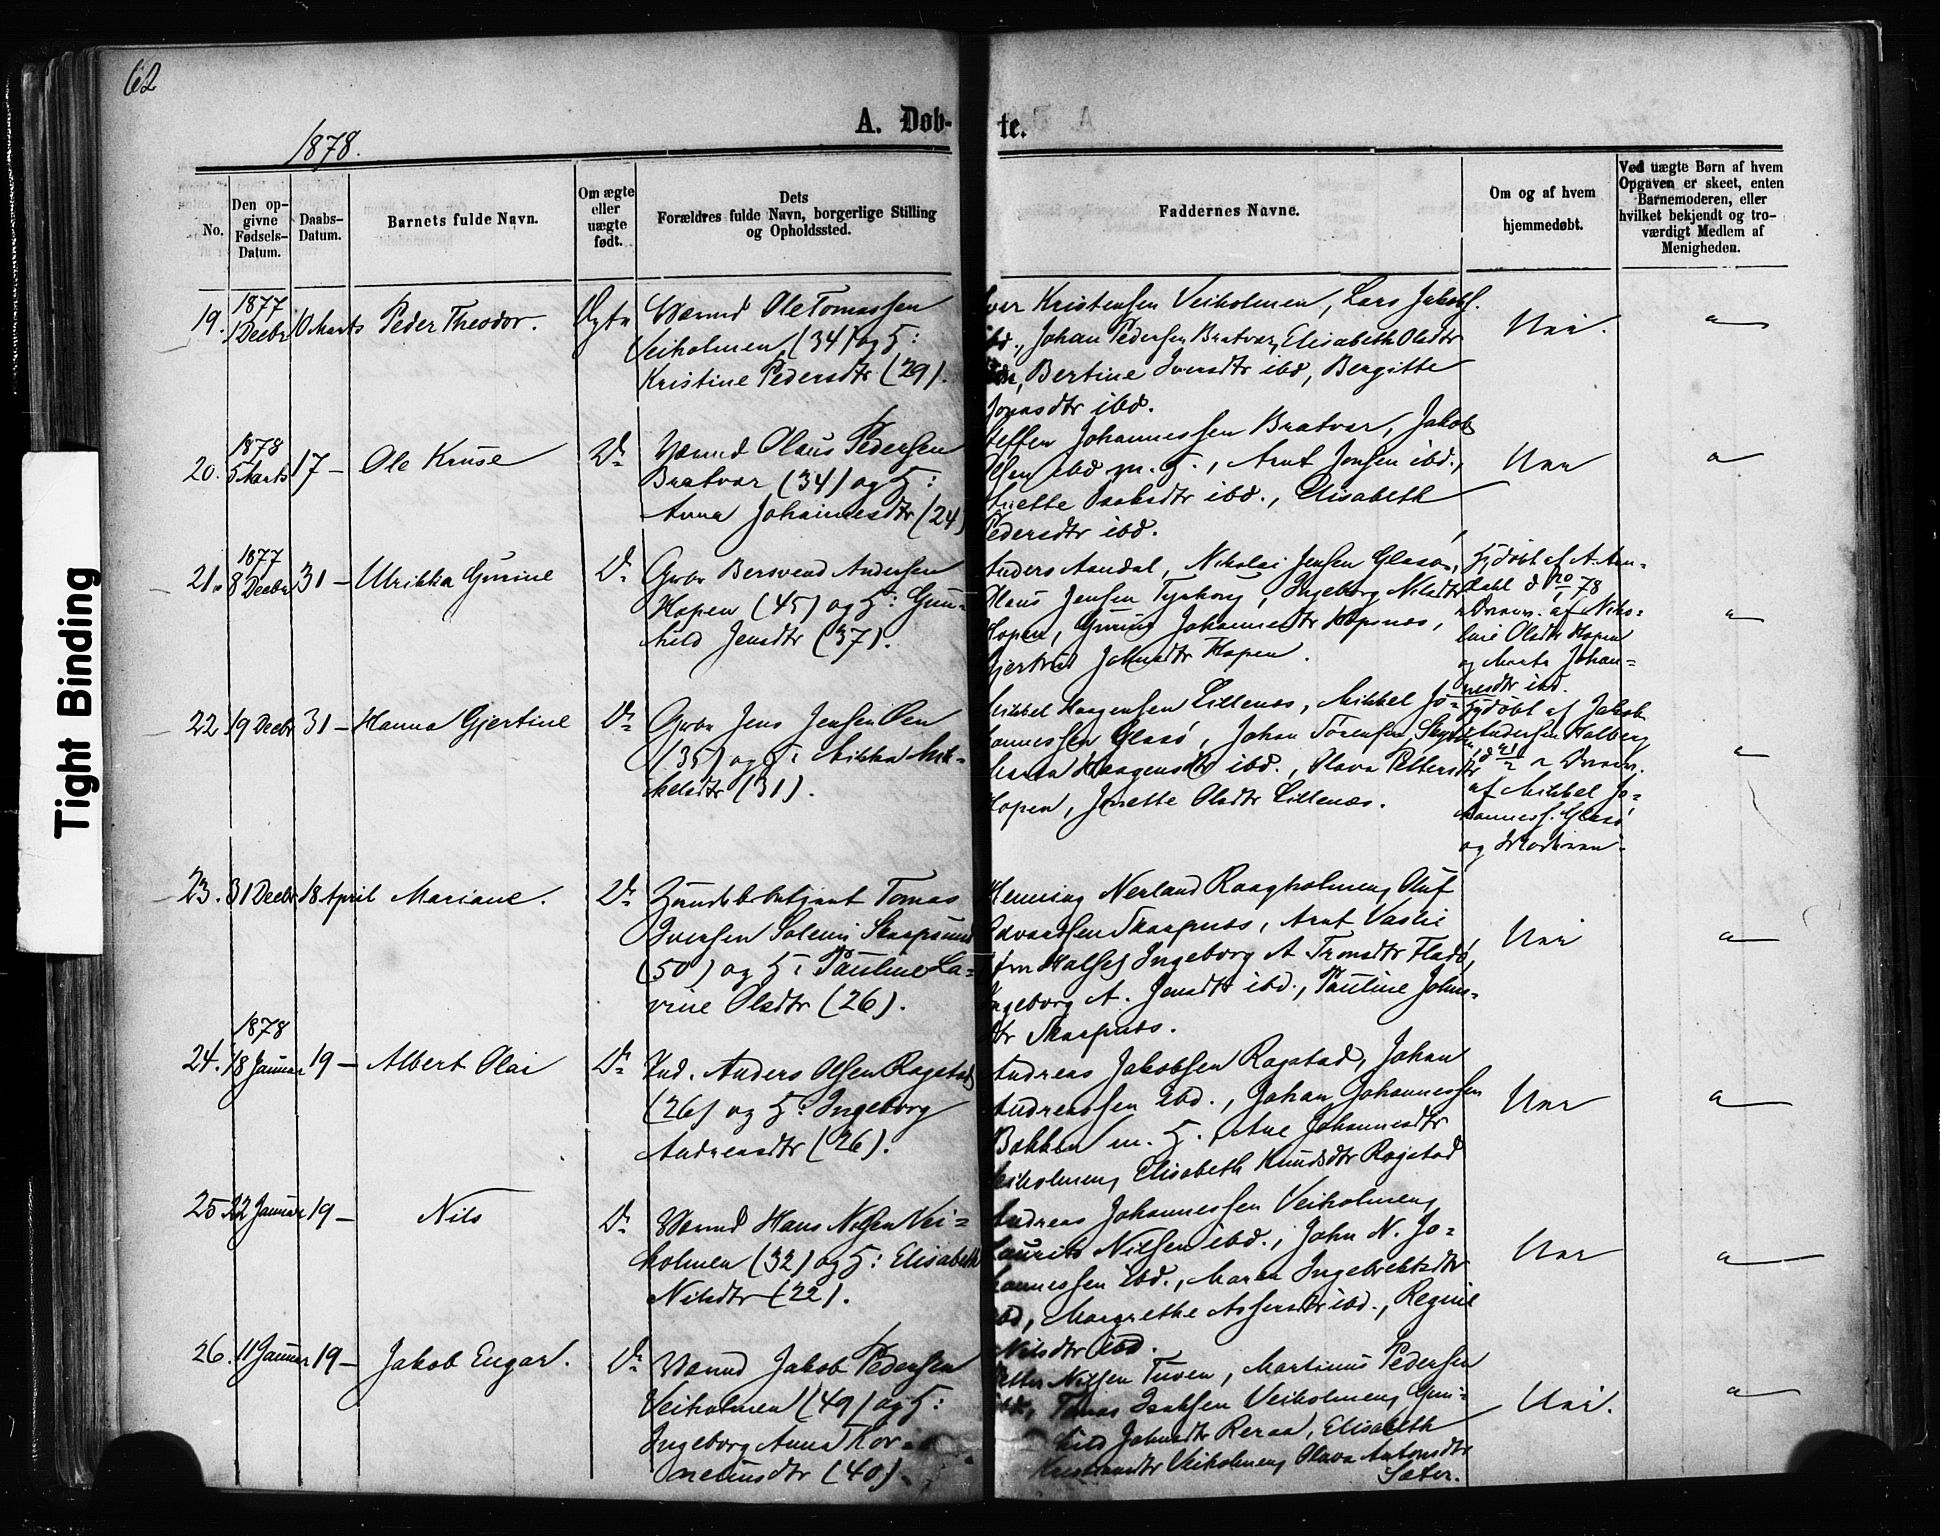 62
A. Døb-
te.
1878.
No.
Den op-
givne
Fødsels-
Datum.
Daabs-
Datum.
Barnets fulde Navn.
Om ægte
eller
uægte
født.
Dets
Forældres fulde Navn, borgerlige Stilling
og Opholdssted.
Faddernes Navne.
Om og af hvem
hjemmedøbt.
Ved uægte Børn af hvem
Opgaven er skeet, enten
Barnemoderen, eller
hvilket bekjendt og tro-
værdigt Medlem af
Menigheden.
Tight Binding
1877
19. 1 Decbr 10 Marts Peder Theodor. Ægte Ole Tomassen
Veiholmen (34) og H:
Kristine Pedersdtr (29).
Iver Kristensen Veiholmen, Lars Jakobs.
ibd., Johan Pedersen Bratvær, Elisabeth Olsdtr
Bertine Iversdtr ibd, Bergitte
Jonasdtr ibd.
Nei. a
1878
20. 5 Marts 17 – Ole Kruse Do Olaus Pedersen
Bratvær (34) og H:
Anna Johannesdtr (24)
Steffen Johannessen Bratvær, Jakob
Olsen ibd m. H., Arnt Jonsen ibd.,
Isaksdtr ibd., Elisabeth
Pedersdtr ibd.
Nei a
1877
21. 8 Decbr 31 – Ulrikka Gurine Do Gbr Bersvend Andersen
Hopen (45) og H: Gun-
hild Jensdtr (37).
Anders Aandal, Nikolai Jensen Glasø,
Olaus Jensen Tyrhoug, Ingeborg Nilsdtr
Hopen, Gurine Johannesdtr Hopsnes,
Gjertrud Johnsdtr Hopen.
Hjdøbt af A. Aan-
dahl d 20/1 78
af Niko-
line Olsdtr Hopen
og Marta Johan-
nesdtr ibd.
a
22 19 Decbr 31 – Hanna Gjertine Do Gbr Jens Jensen Øen
(35) og H: Mikka Mik-
kelsdtr (31).
Mikkel Haagensen Lillenes, Mikkel Jo-
hannessen Glasø, Johan Tørensen
Maren Haagensdtr ibd., Olava Pettersdtr
Hopen, Jonette Olsdtr Lillenæs.
Hjdøbt af Jakob
Andersen Holberg
af Mikkel Jo-
hanness. Glasø
og
a
23. 31 Decbr 18 April Mariane. Do Tomas
Iversen Solemi Skarpsund
(50) og H: Pauline La-
vine Olsdtr (26).
Henning Nerland Raagholmen, Oluf
Edvardsen Skarpnes, Arnt Vaslie
Halse, Ingeborg A Tronsdtr Flatø,
Ingeborg A. Jensdtr ibd., Pauline Johns-
dtr Skarpnes.
Nei a
1878
24. 18 Januar 19 – Albert Olai Do Ind. Anders Olsen Rogstad
(26) og H: Ingeborg
Andreasdtr (26).
Andreas Jakobsen Rogstad, Johan
Andreassen ibd., Johan Johannessen
Bakken m. H., Ane Johannesdtr
Veiholmen, Elisabeth Knudsdtr Rogstad
Nei a
25 22 Januar 19 – Nils Do Hans Nilsen Vei-
holmen (32) og H: Elisabeth
Nilsdtr (22).
Andreas Johannessen Veiholmen,
Laurits Nilsen ibd., John N. Jo-
hannessen ibd., Maren Ingebrektsdtr
ibd, Margrethe Assersdtr ibd., Regine
Nilsdtr ibd.
Nei a
26. 11 Januar 19 – Jakob Engar. Do Jakob Pedersen
Veiholmen (49) og H:
Ingeborg Anna Kor-
neliusdtr (40).
Petter Nilsen Tuven, Martinus Pedersen
ibd, Isaksen Veiholmen, Gun-
hild Johnsdtr Reraa, Elisabeth
Kristiansdtr Veiholmen, Olava Antonsdtr
Sæter.
Nei. a